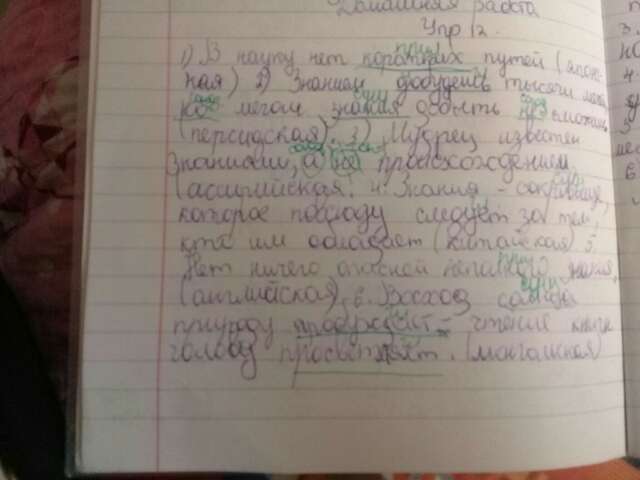 Домашняя работа
Упр 12.
1) В науку нет коротких путей (япон-
ная) 2) Знанием добудешь тысячи
ко мечом знания добыть не сможешь
(персидская). 3) Мудрец известен
Знаниями, а не происхождением
(ассирийская. 4. Знания - сокровище,
которое повсюду следует за тем,
кто им обладает (китайская). 5.
Нет ничего опасной знания,
(английская), 6. Восход солнца
природу пробуждает - чтение книги
голову просветляет. (монгольская)